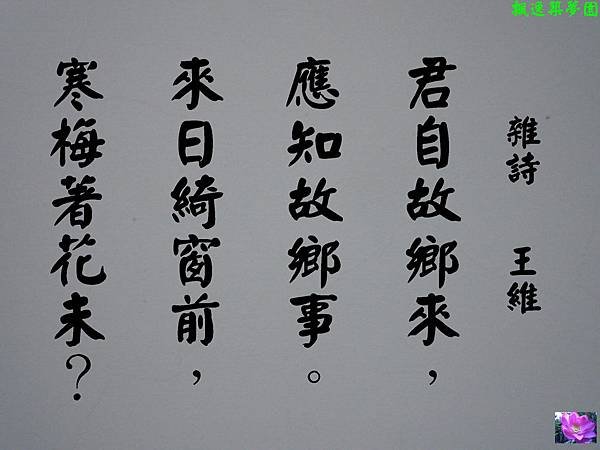 飄逸築夢園
雜詩 王維
君自故鄉來，
應知故鄉事。
來日綺窗前，
寒梅著花未？